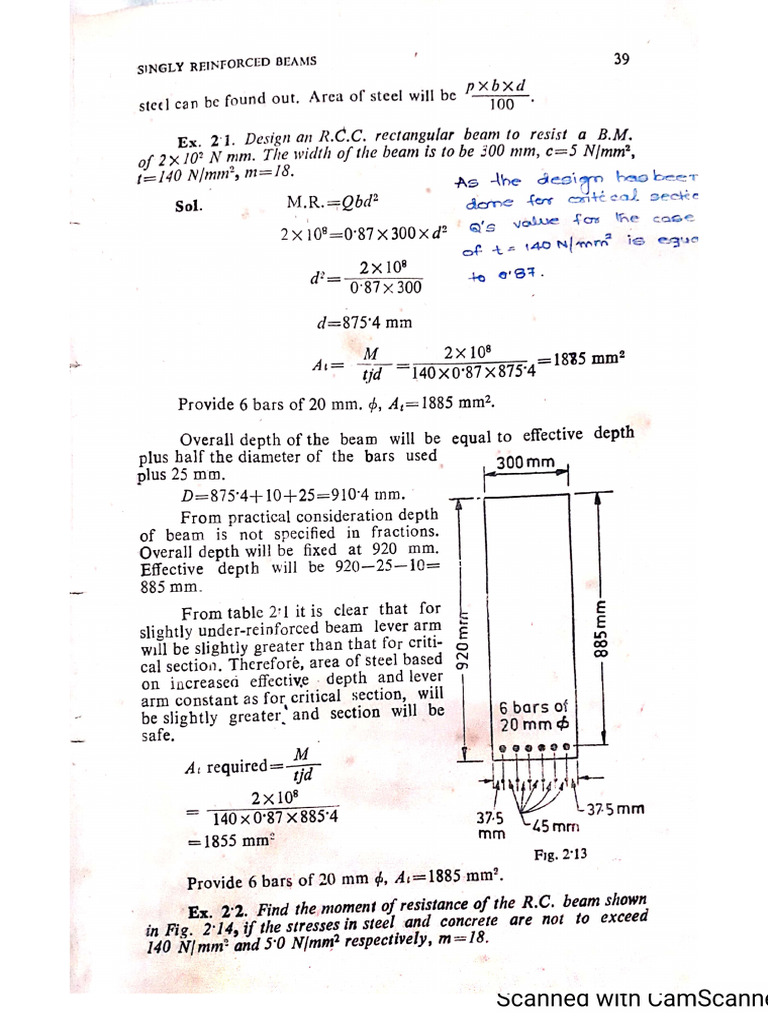 SINGLY REINFORCED BEAMS 39
steel can be found out. Area of steel will be p×b×d/100.
Ex. 2·1. Design an R.C.C. rectangular beam to resist a B.M.
of 2×10² N mm. The width of the beam is to be 300 mm, c=5 N/mm²,
t=140 N/mm², m=18.
As the design has been
Sol. M.R.=Qbd²
done for critical sectio
2×10⁸=0·87×300×d²
Q's value for the case
of t = 140 N/mm² is equa
d²= 2×10⁸/0·87×300
to 0.87.
d=875·4 mm
At= M/tjd = 2×10⁸/140×0·87×875·4 =1885 mm²
Provide 6 bars of 20 mm. ϕ, At=1885 mm².
Overall depth of the beam will be equal to effective depth
plus half the diameter of the bars used
plus 25 mm.
D=875·4+10+25=910·4 mm.
From practical consideration depth
of beam is not specified in fractions.
Overall depth will be fixed at 920 mm.
Effective depth will be 920—25—10=
885 mm.
From table 2·1 it is clear that for
slightly under-reinforced beam lever arm
will be slightly greater than that for criti-
cal section. Therefore, area of steel based
on increased effective depth and lever
arm constant as for critical section, will
be slightly greater and section will be
safe.
At required= M/tjd
= 2×10⁸/140×0·87×885·4
=1855 mm²
300 mm
920 mm
885 mm
6 bars of
20 mm ϕ
37·5
mm
45 mm
37·5 mm
Fig. 2·13
Provide 6 bars of 20 mm ϕ, At=1885 mm².
Ex. 2·2. Find the moment of resistance of the R.C. beam shown
in Fig. 2·14, if the stresses in steel and concrete are not to exceed
140 N/mm² and 5·0 N/mm² respectively, m=18.
Scanned with CamScanne